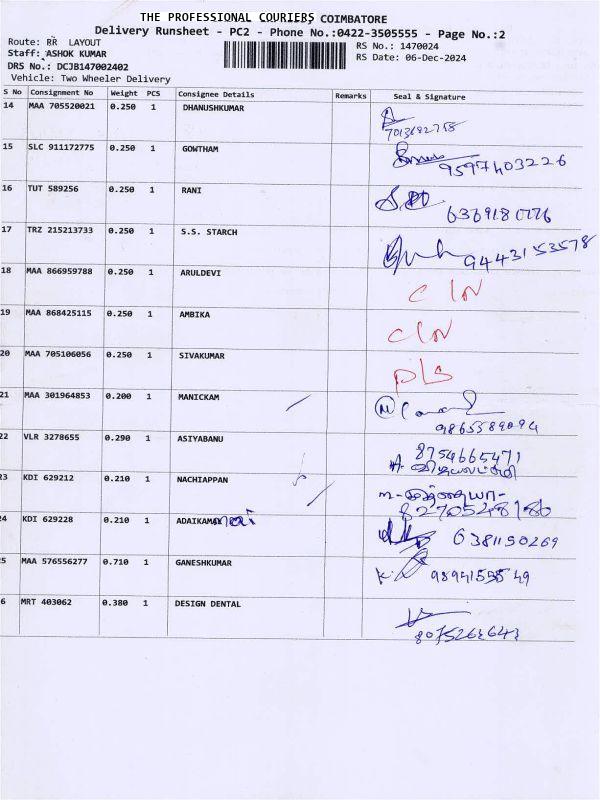 THE PROFESSIONAL COURIERS COIMBATORE
Delivery Runsheet - PC2 - Phone No.:0422-3505555 - Page No.:2
Route: RR LAYOUT
Staff: ASHOK KUMAR
DRS No.: DCJB147002402
Vehicle: Two Wheeler Delivery
RS No.: 1470024
RS Date: 06-Dec-2024
S No Consignment No Weight PCS Consignee Details Remarks Seal & Signature
14 MAA 705520021 0.250 1 DHANUSHKUMAR
15 SLC 911172775 0.250 1 GOWTHAM 9597403226
16 TUT 589256 0.250 1 RANI
17 TRZ 215213733 0.250 1 S.S. STARCH 9443153578
18 MAA 866959788 0.250 1 ARULDEVI
19 MAA 868425115 0.250 1 AMBIKA
20 MAA 705106056 0.250 1 SIVAKUMAR
21 MAA 301964853 0.200 1 MANICKAM
22 VLR 3278655 0.290 1 ASIYABANU 8754665471
23 KDI 629212 0.210 1 NACHIAPPAN
24 KDI 629228 0.210 1 6381150269
5 MAA 576556277 0.710 1 GANESHKUMAR
6 MRT 403062 0.380 1 DESIGN DENTAL